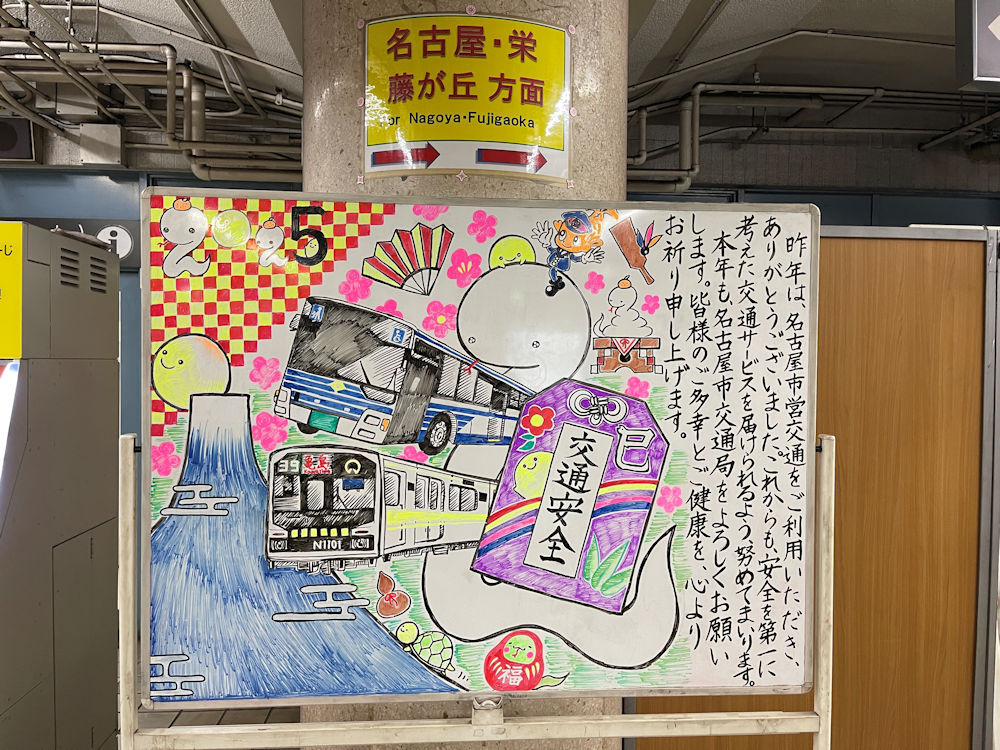 名古屋・栄
藤が丘 方面
or Nagoya・Fujigaoka
25
昨年は、名古屋市営交通をご利用いただき、
ありがとうございました。これからも、安全を第一に
考えた交通サービスを届けられるよう努めてまいります。
本年も、名古屋市交通局をよろしくお願い
します。皆様のご多幸とご健康を、心より
お祈り申し上げます。
巳
交通安全
39
N1101
福